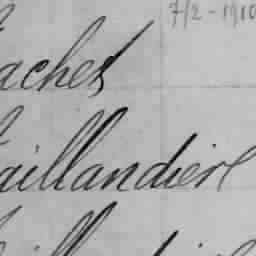 7/2 - 1910
aches
aillandier